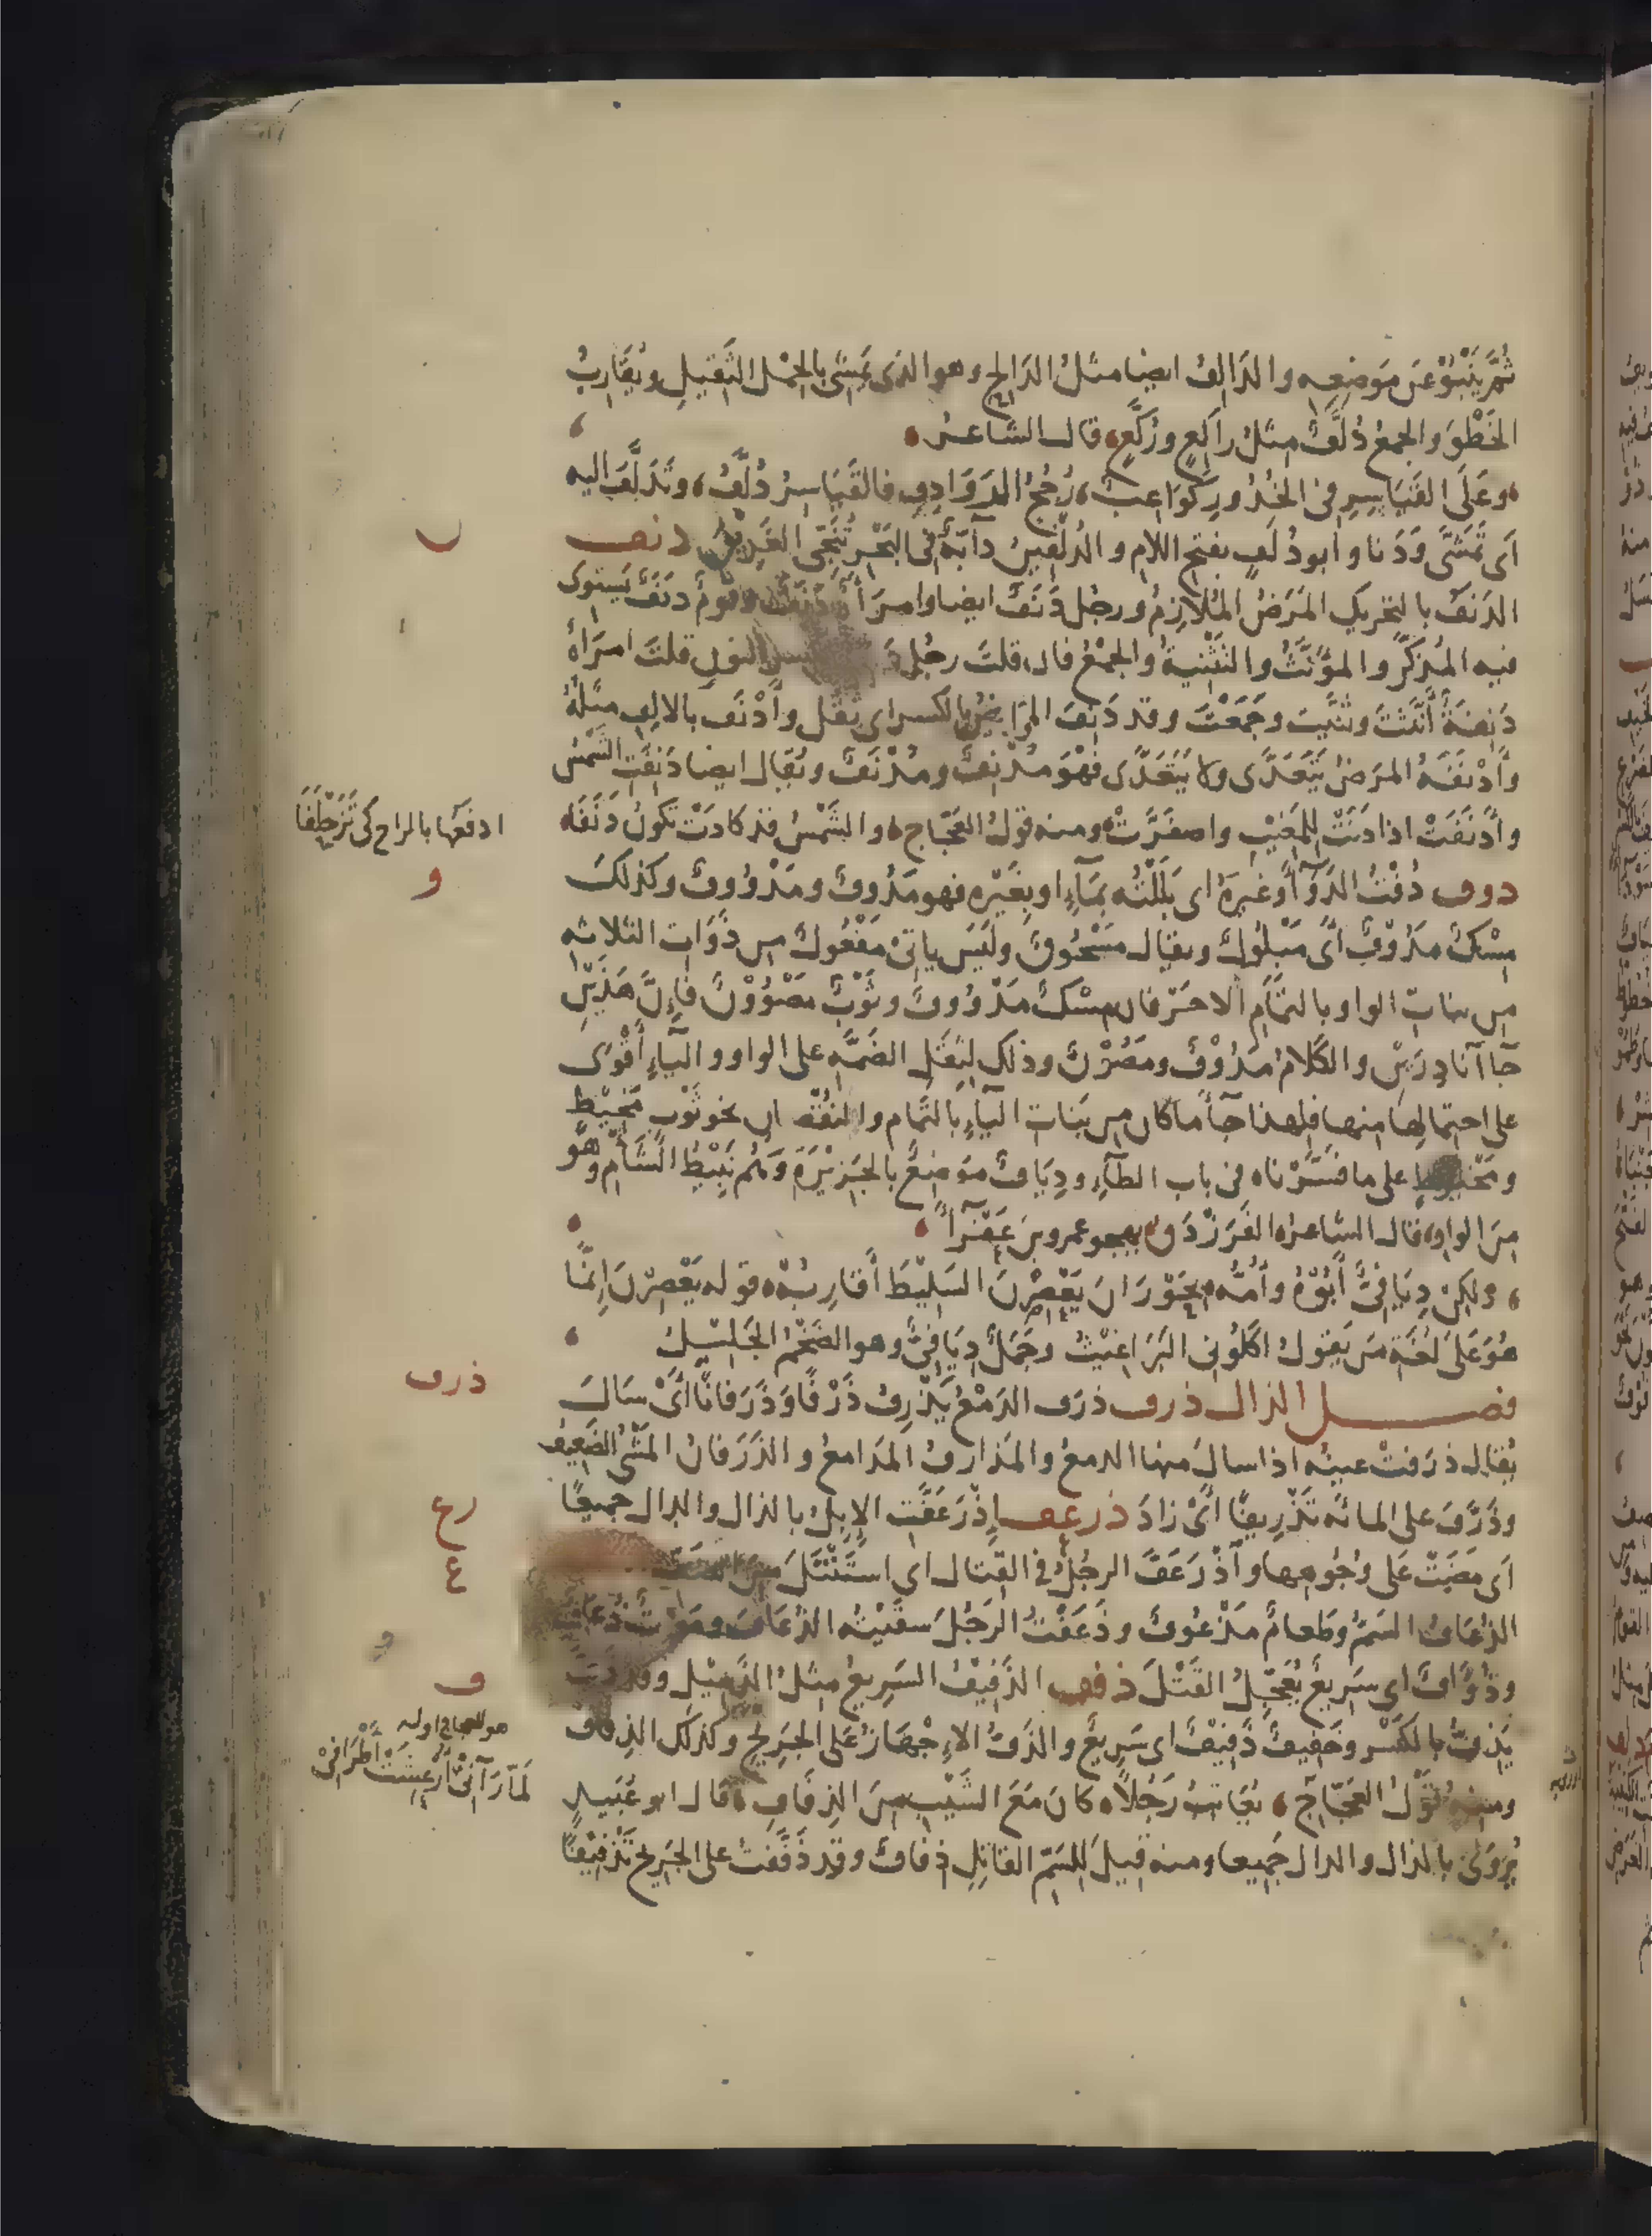 ثُمَّ يَنْبُوْ عَن مَوضِعِه والدَالِفُ ايضا مثلُ الدَالِح وهو الذى يَمشِى بالحِمْل الثَقيلِ ويُقَارِبُ
الخَطْوَ والجمعُ دُلَّفٌ مثلُ راكِعٍ ورُكَّعٍ قال الشاعر
وعَلَى القَيَاسِرِ فى الخُدُورِ كَوَاعِبٌ رُجُحُ الرَوَادِفِ فالقَيَاسِرُ دُلَّفُ وتَدَلَّفَ اليه
اَى تَمَشَّى وَدَنا وابو دُلَفٍ بفتح اللام والدُلْفِينُ دآبّةٌ فى البَحْرِ تُنَجِّى الغَرِيقَ دنف
الدَنَفُ بالتحريك المَرَضُ المُلَازِمُ ورجُل دَنَفٌ ايضا وامرَأةٌ دَنَفٌ وقومٌ دَنَفٌ يَستوى
فيه المُذكَّرُ والمؤنَّثُ والتَثْنيةُ والجَمْعُ فان قلتَ رجُل النون قلتَ امرَاةٌ
دَنِفَةٌ أَنَّثْتَ وثَنَّيتَ وجَمَعْتَ وقد دَنِفَ المرَيضُ بالكسر اى ثَقُل وأَدْنَفَ بالالفِ مثلُهُ
وأَدْنَفَهُ المرَضُ يَتَعَدَّى ولا يَتَعَدَّى فهْوَ مُدْنِفٌ ومُدْنَفٌ ويُقال ايضا دَنِفَتِ الشَمْسُ
وأَدْنَفَتْ اذا دَنَتْ لِلمَغيْبِ واصفَرَّتْ ومنه قولُ العَجّاج والشَمْسُ قد كادَتْ تكونُ دَنَفَا
ادفَعُها بالراح كى تَزَحْلَفَا
و
دوف دُفْتُ الدَوَآءَ وغَيرَهُ اى بَلَلْتُه بِمَآءٍ او بِغَيْرِه فهو مَدُوفٌ ومَدْوُوفٌ وكذلكَ
مِسْكٌ مَدُوْفٌ أىْ مَبْلُولٌ ويقال مَسْحُوقٌ ولَيسَ ياتى مَفْعُولٌ من ذَوَات الثلاثه
من بنات الواو بالتَمَامِ الا حَرفان مِسْكٌ مَدْوُوفٌ وثَوْبٌ مَصْوُوْنٌ فإِنَّ هَذَينِ
جاآ نادِرَينِ والكَلامُ مَدُوْفٌ ومَصُوْنٌ وذلك لِثِقَلِ الضمَّه على الواو واليآءِ أَقْوَى
على احتمالها منها فلهذا جآءَ ما كان من بَنَات اليآءِ بالتَمام والنقْصان نحو ثَوْب مَخِيْطٍ
ومَخْيُوطٍ على ما فسَّرْناه فى باب الطآءِ ودِيَافٌ مَوضِعٌ بالجَزيْرَةِ وَهُم نَبِيْطُ الشَأمِ وهو
مِنَ الواو قال الشاعر الفَرَزْدَق يهجو عمرو بنَ عَفْرَآءَ
ولكِنْ دِيَافِىٌّ أَبُوْهُ وأُمُّه بحَوْرَانَ يَعْصِرْنَ السَلِيْطَ أَقَارِبُهْ قوله يَعْصِرْنَ اِنمَّا
هُوَ عَلَى لُغَةِ مَن يَقولُ اكَلُونِى البَرَاغيْثُ وجَمَلٌ دِيَافِىٌّ وهو الضَخْمُ الجَلِيْلُ
ذرف
فصل الذال ذرف ذرَف الدَمْعُ يَذْرِفُ ذَرْفًا وَذَرَفانًا أَىْ سَالَ
يُقال ذرَفتْ عينُه اذا سالَ منها الدمعُ والمَذارِفُ المَدامعُ والذَرَفانُ المَشْىُ الضَعِيف
وذَرَّفَ على المائَه تَذْرِيفًا أَىْ زادَ ذرعف إِذْرَعَفَّتِ الإِبِلُ بالذال والدال جميعًا
رع
ع
اَى مَضَتْ عَلى وُجُوهِها واَذْرَعَفَّ الرجُلُ فى القِتال اى استَنْتَلَ مِنَ الصَفّ
الذُعَافُ السَمُّ وطعامٌ مَذْعُوفٌ وذَعَفْتُ الرَجُلَ سقَيْتُه الذُعَافَ وموْتٌ ذُعَافٌ
وذُؤَافٌ اى سَرِيعٌ يُعَجِّلُ القَتْلَ ذفف الذَفِيْفُ السَرِيعُ مثلُ الذَمِيْلِ وقد ذَفَّ
ف
يَذِفُّ بالكَسْرِ وخَفِيفٌ ذَفِيْفٌ اى سَرِيعٌ والذَفُّ الإجْهَازُ عَلى الجَرِيحِ وكذلك الذِفَاف
ومنه قَوْلُ العَجّاجِ يُعَاتبُ رَجُلاً كانَ مَعَ الشَيْبِ مِنَ الذِفَافِ قال ابو عُبَيدٍ
هو للعجاج اوله
لَمّا رَآنِىْ اُرْعِشَتْ اَطْرَافِىْ
يُروَى بالذال والدال جَمِيعا ومنه قِيلَ للسَمِّ القاتِلِ ذِفافٌ وقد ذَفَّفتُ على الجَرِيح تَذْفِيْفًا